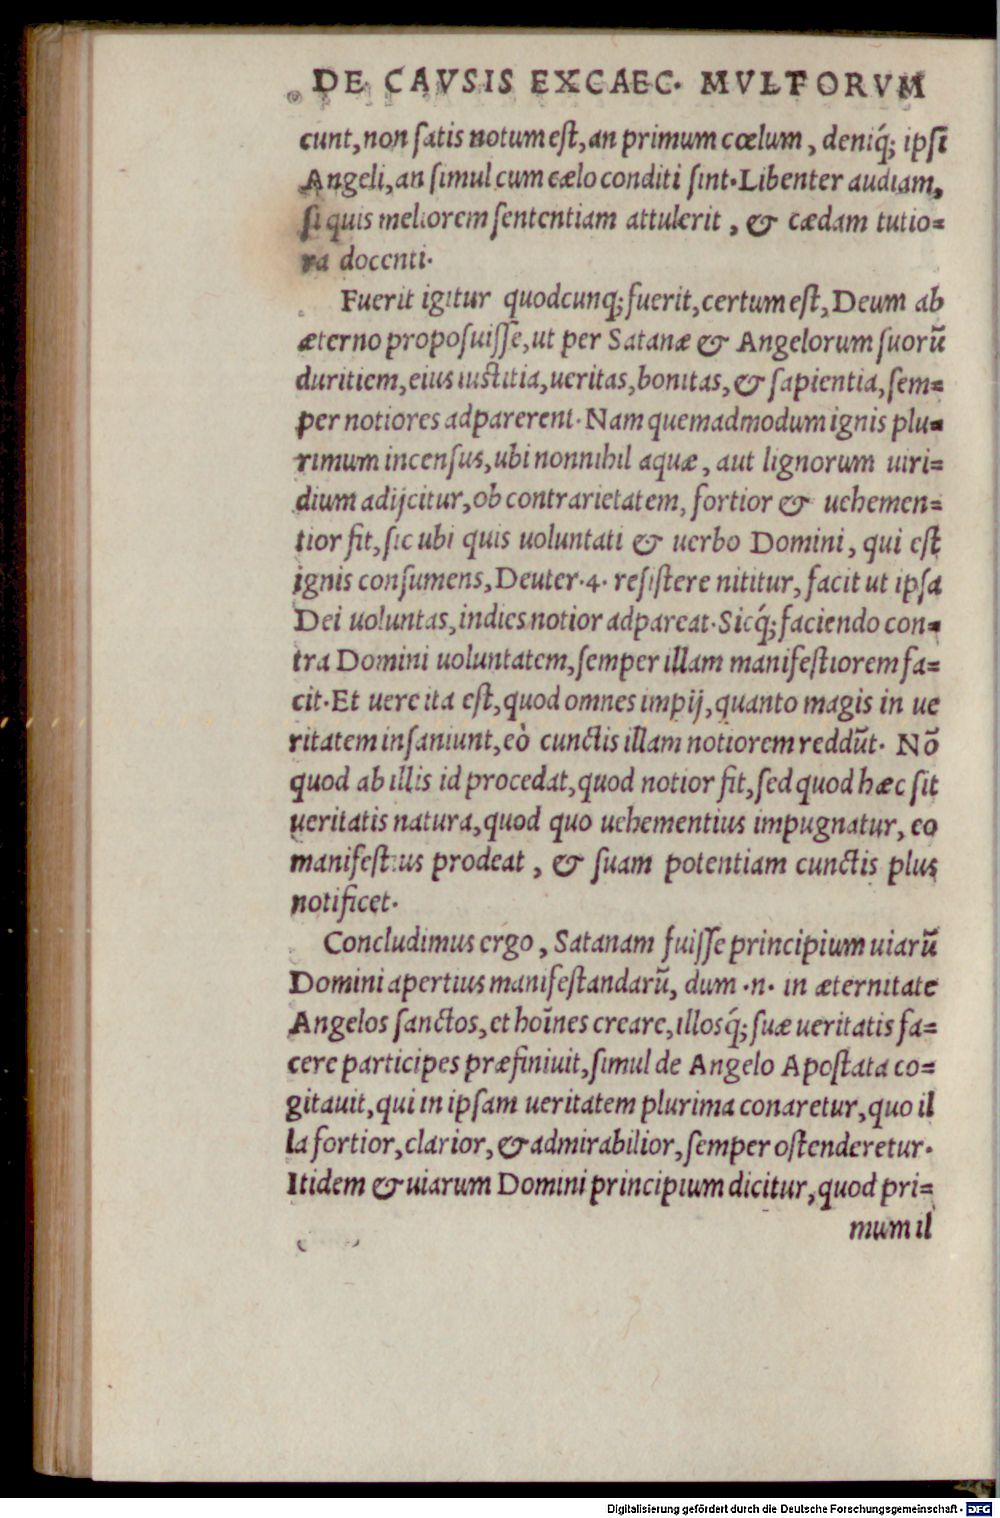 DE CAVSIS EXCAEC. MVLTORVM
cunt, non ſatis notum eſt, an primum cœlum, deniq́; ipſi
Angeli, an ſimul cum cælo conditi ſint. Libenter audiam,
ſi quis meliorem ſententiam attulerit, & cædam tutio=
ra docenti.
Fuerit igitur quodcunq; fuerit, certum eſt, Deum ab
æterno propoſuiſſe, ut per Satanæ & Angelorum ſuorũ
duritiem, eius iuſtitia, ueritas, bonitas, & ſapientia, ſem=
per notiores adparerent. Nam quemadmodum ignis plu=
rimum incenſus, ubi nonnihil aquæ, aut lignorum uiri=
dium adijcitur, ob contrarietatem, fortior & uehemen=
tior fit, ſic ubi quis uoluntati & uerbo Domini, qui eſt
ignis conſumens, Deuter.4. reſiſtere nititur, facit ut ipſa
Dei uoluntas, indies notior adpareat. Sicq́; faciendo con=
tra Domini uoluntatem, ſemper illam manifeſtiorem fa=
cit. Et uere ita eſt, quod omnes impij, quanto magis in ue
ritatem inſaniunt, eò cunctis illam notiorem reddũt. Nõ
quod ab illis id procedat, quod notior fit, ſed quod hæc ſit
ueritatis natura, quod quo uehementius impugnatur, eo
manifeſtius prodeat, & ſuam potentiam cunctis plus
notificet.
Concludimus ergo, Satanam fuiſſe principium uiarũ
Domini apertius manifeſtandarũ, dum .n. in æternitate
Angelos ſanctos, et hoĩnes creare, illosq́; ſuæ ueritatis fa=
cere participes præfiniuit, ſimul de Angelo Apoſtata co=
gitauit, qui in ipſam ueritatem plurima conaretur, quo il
la fortior, clarior, & admirabilior, ſemper oſtenderetur.
Itidem & uiarum Domini principium dicitur, quod pri=
mum il
Digitalisierung gefördert durch die Deutsche Forschungsgemeinschaft - DFG